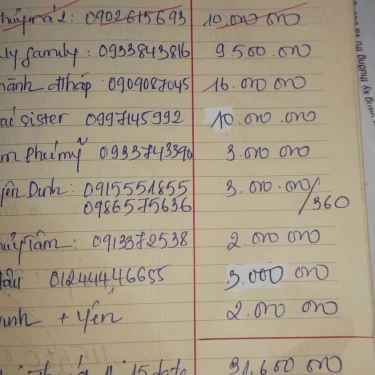 0902615693 10.000 000
ly family: 0933843816 9.500 000
hành tháp 0909087045 16.000 000
sister 0997145992 10.000.000
Phú mỹ 0933743390 3.000 000
ên Dinh: 0915551855 3.000.000/360
0986575636
Tâm: 0913372538 2.000 000
ậu 01244446655 3.000 000
anh + Yến 2.000 000
31.600 000